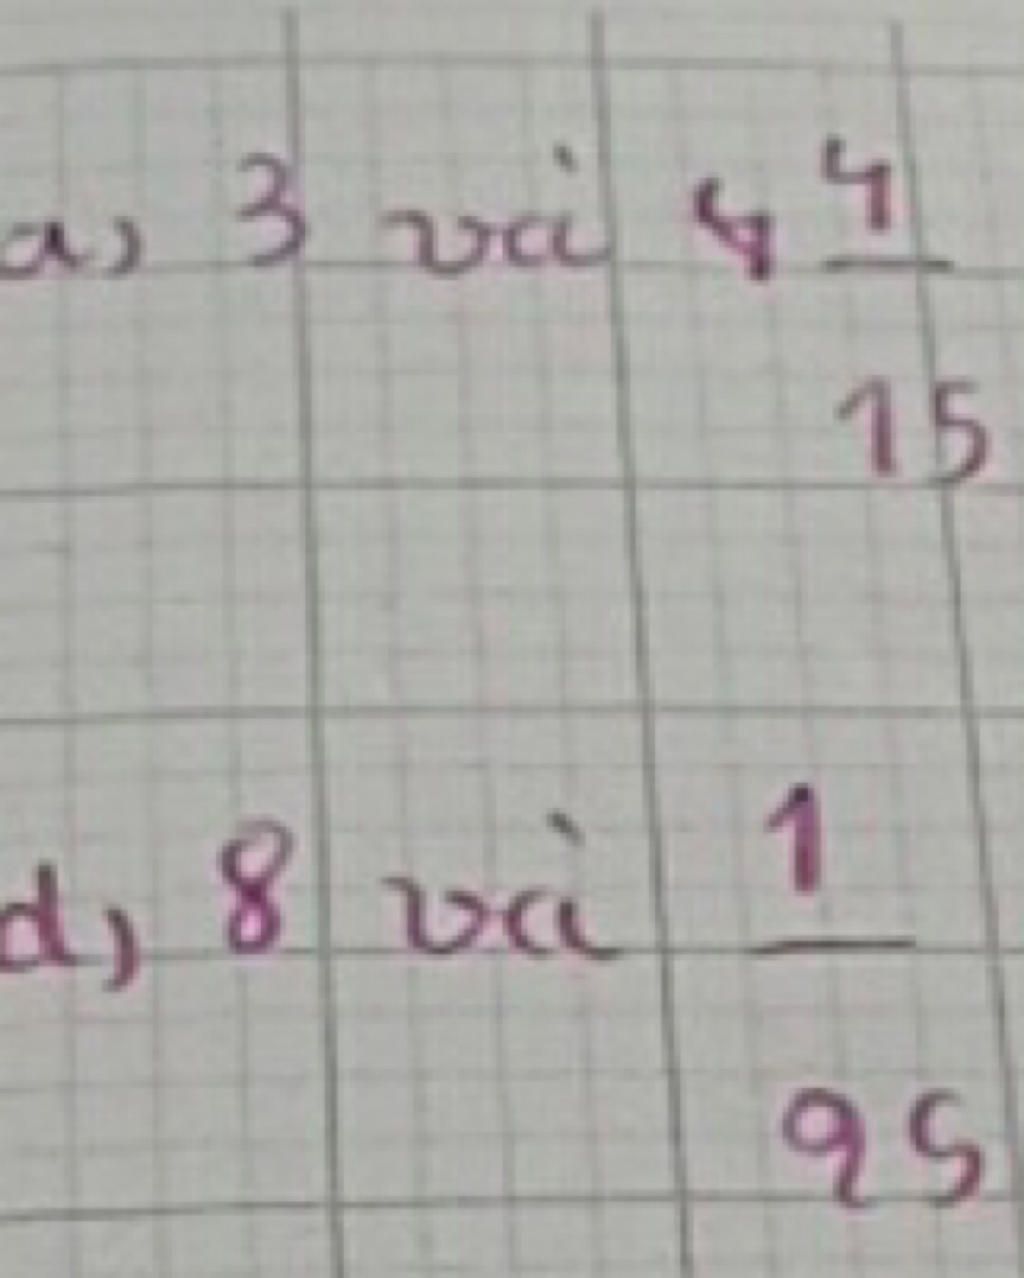 a, 3 và 4 4/15
d, 8 và 1/95